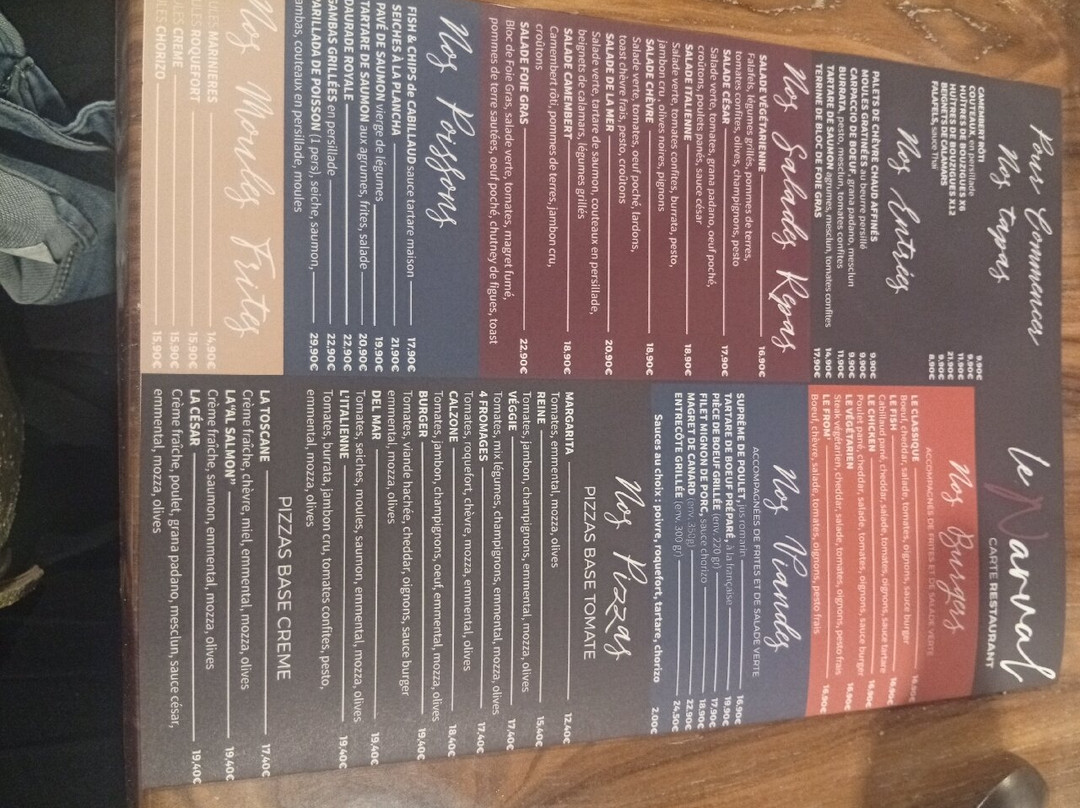 le Narval
CARTE RESTAURANT
Pour Commencer
Nos tapas
CAMEMBERT RÔTI 9.90€
COUTEAUX, en persillade 9.90€
HUÎTRES DE BOUZIGUES X6 11.90€
HUÎTRES DE BOUZIGUES X12 21.90€
BEIGNETS DE CALAMARS 9.90€
FALAFELS, sauce Thaï 8.90€
Nos Entrées
PALETS DE CHÈVRE CHAUD AFFINÉS 9.90€
MOULES GRATINÉES au beurre persillé 9.90€
CARPACCIO DE BOEUF, grana padano, mesclun 9.90€
BURRATA, pesto, mesclun, tomates confites 11.90€
TARTARE DE SAUMON agrumes, mesclun, tomates confites 14.90€
TERRINE DE BLOC DE FOIE GRAS 17.90€
Nos Salades Repas
SALADE VÉGÉTARIENNE 16.90€
Falafels, légumes grillés, pommes de terres,
tomates confites, olives, champignons, pesto
SALADE CÉSAR 17.90€
Salade verte, tomates, grana padano, oeuf poché,
croûtons, poulets panés, sauce césar
SALADE ITALIENNE 18.90€
Salade verte, tomates confites, burrata, pesto,
jambon cru, olives noires, pignons
SALADE CHÈVRE 18.90€
Salade verte, tomates, oeuf poché, lardons,
toast chèvre frais, pesto, croûtons
SALADE DE LA MER 20.90€
Salade verte, tartare de saumon, couteaux en persillade,
beignets de calamars, légumes grillés
SALADE CAMEMBERT 18.90€
Camembert rôti, pommes de terres, jambon cru,
croûtons
SALADE FOIE GRAS 22.90€
Bloc de Foie Gras, salade verte, tomates, magret fumé,
pommes de terre sautées, oeuf poché, chutney de figues, toast
Nos Poissons
FISH & CHIPS de CABILLAUD sauce tartare maison 17.90€
SEICHES À LA PLANCHA 21.90€
PAVÉ DE SAUMON vierge de légumes 19.90€
TARTARE DE SAUMON aux agrumes, frites, salade 20.90€
DAURADE ROYALE 22.90€
GAMBAS GRILLÉES en persillade 22.90€
PARILLADA DE POISSON (1 pers), seiche, saumon, 29.90€
ambas, couteaux en persillade, moules
Nos Moules Frites
ULES MARINIERES 14.90€
ULES ROQUEFORT 15.90€
ULES CREME 15.90€
LES CHORIZO 15.90€
Nos Burgers
ACCOMPAGNÉS DE FRITES ET DE SALADE VERTE
LE CLASSIQUE 16.90€
Boeuf, cheddar, salade, tomates, oignons, sauce burger
LE FISH 16.90€
Cabillaud pané, cheddar, salade, tomates, oignons, sauce tartare
LE CHICKEN 16.90€
Poulet pané, cheddar, salade, tomates, oignons, sauce burger
LE VÉGÉTARIEN 16.90€
Steak végétarien, cheddar, salade, tomates, oignons, pesto frais
LE FROM' 16.90€
Boeuf, chèvre, salade, tomates, oignons, pesto frais
Nos Viandes
ACCOMPAGNÉES DE FRITES ET DE SALADE VERTE
SUPRÊME DE POULET, jus romarin 16.90€
TARTARE DE BOEUF PRÉPARÉ, à la française 19.90€
PIÈCE DE BOEUF GRILLÉE (env. 220 gr) 17.90€
FILET MIGNON DE PORC, sauce chorizo 18.90€
MAGRET DE CANARD (env. 350g) 22.90€
ENTRECÔTE GRILLÉE (env. 300 gr) 24.50€
Sauces au choix : poivre, roquefort, tartare, chorizo 2.00€
Nos Pizzas
PIZZAS BASE TOMATE
MARGARITA 12,40€
Tomates, emmental, mozza, olives
REINE 15,40€
Tomates, jambon, champignons, emmental, mozza, olives
VÉGGIE 17,40€
Tomates, mix légumes, champignons, emmental, mozza, olives
4 FROMAGES 17,40€
Tomates, roquefort, chèvre, mozza, emmental, olives
CALZONE 18,40€
Tomates, jambon, champignons, oeuf, emmental, mozza, olives
BURGER 19,40€
Tomates, viande hachée, cheddar, oignons, sauce burger
emmental, mozza, olives
DEL MAR 19,40€
Tomates, seiches, moules, saumon, emmental, mozza, olives
L'ITALIENNE 19,40€
Tomates, burrata, jambon cru, tomates confites, pesto,
emmental, mozza, olives
PIZZAS BASE CREME
LA TOSCANE 17,40€
Crème fraîche, chèvre, miel, emmental, mozza, olives
LA"AL SALMON" 19,40€
Crème fraîche, saumon, emmental, mozza, olives
LA CÉSAR 19,40€
Crème fraîche, poulet, grana padano, mesclun, sauce césar,
emmental, mozza, olives